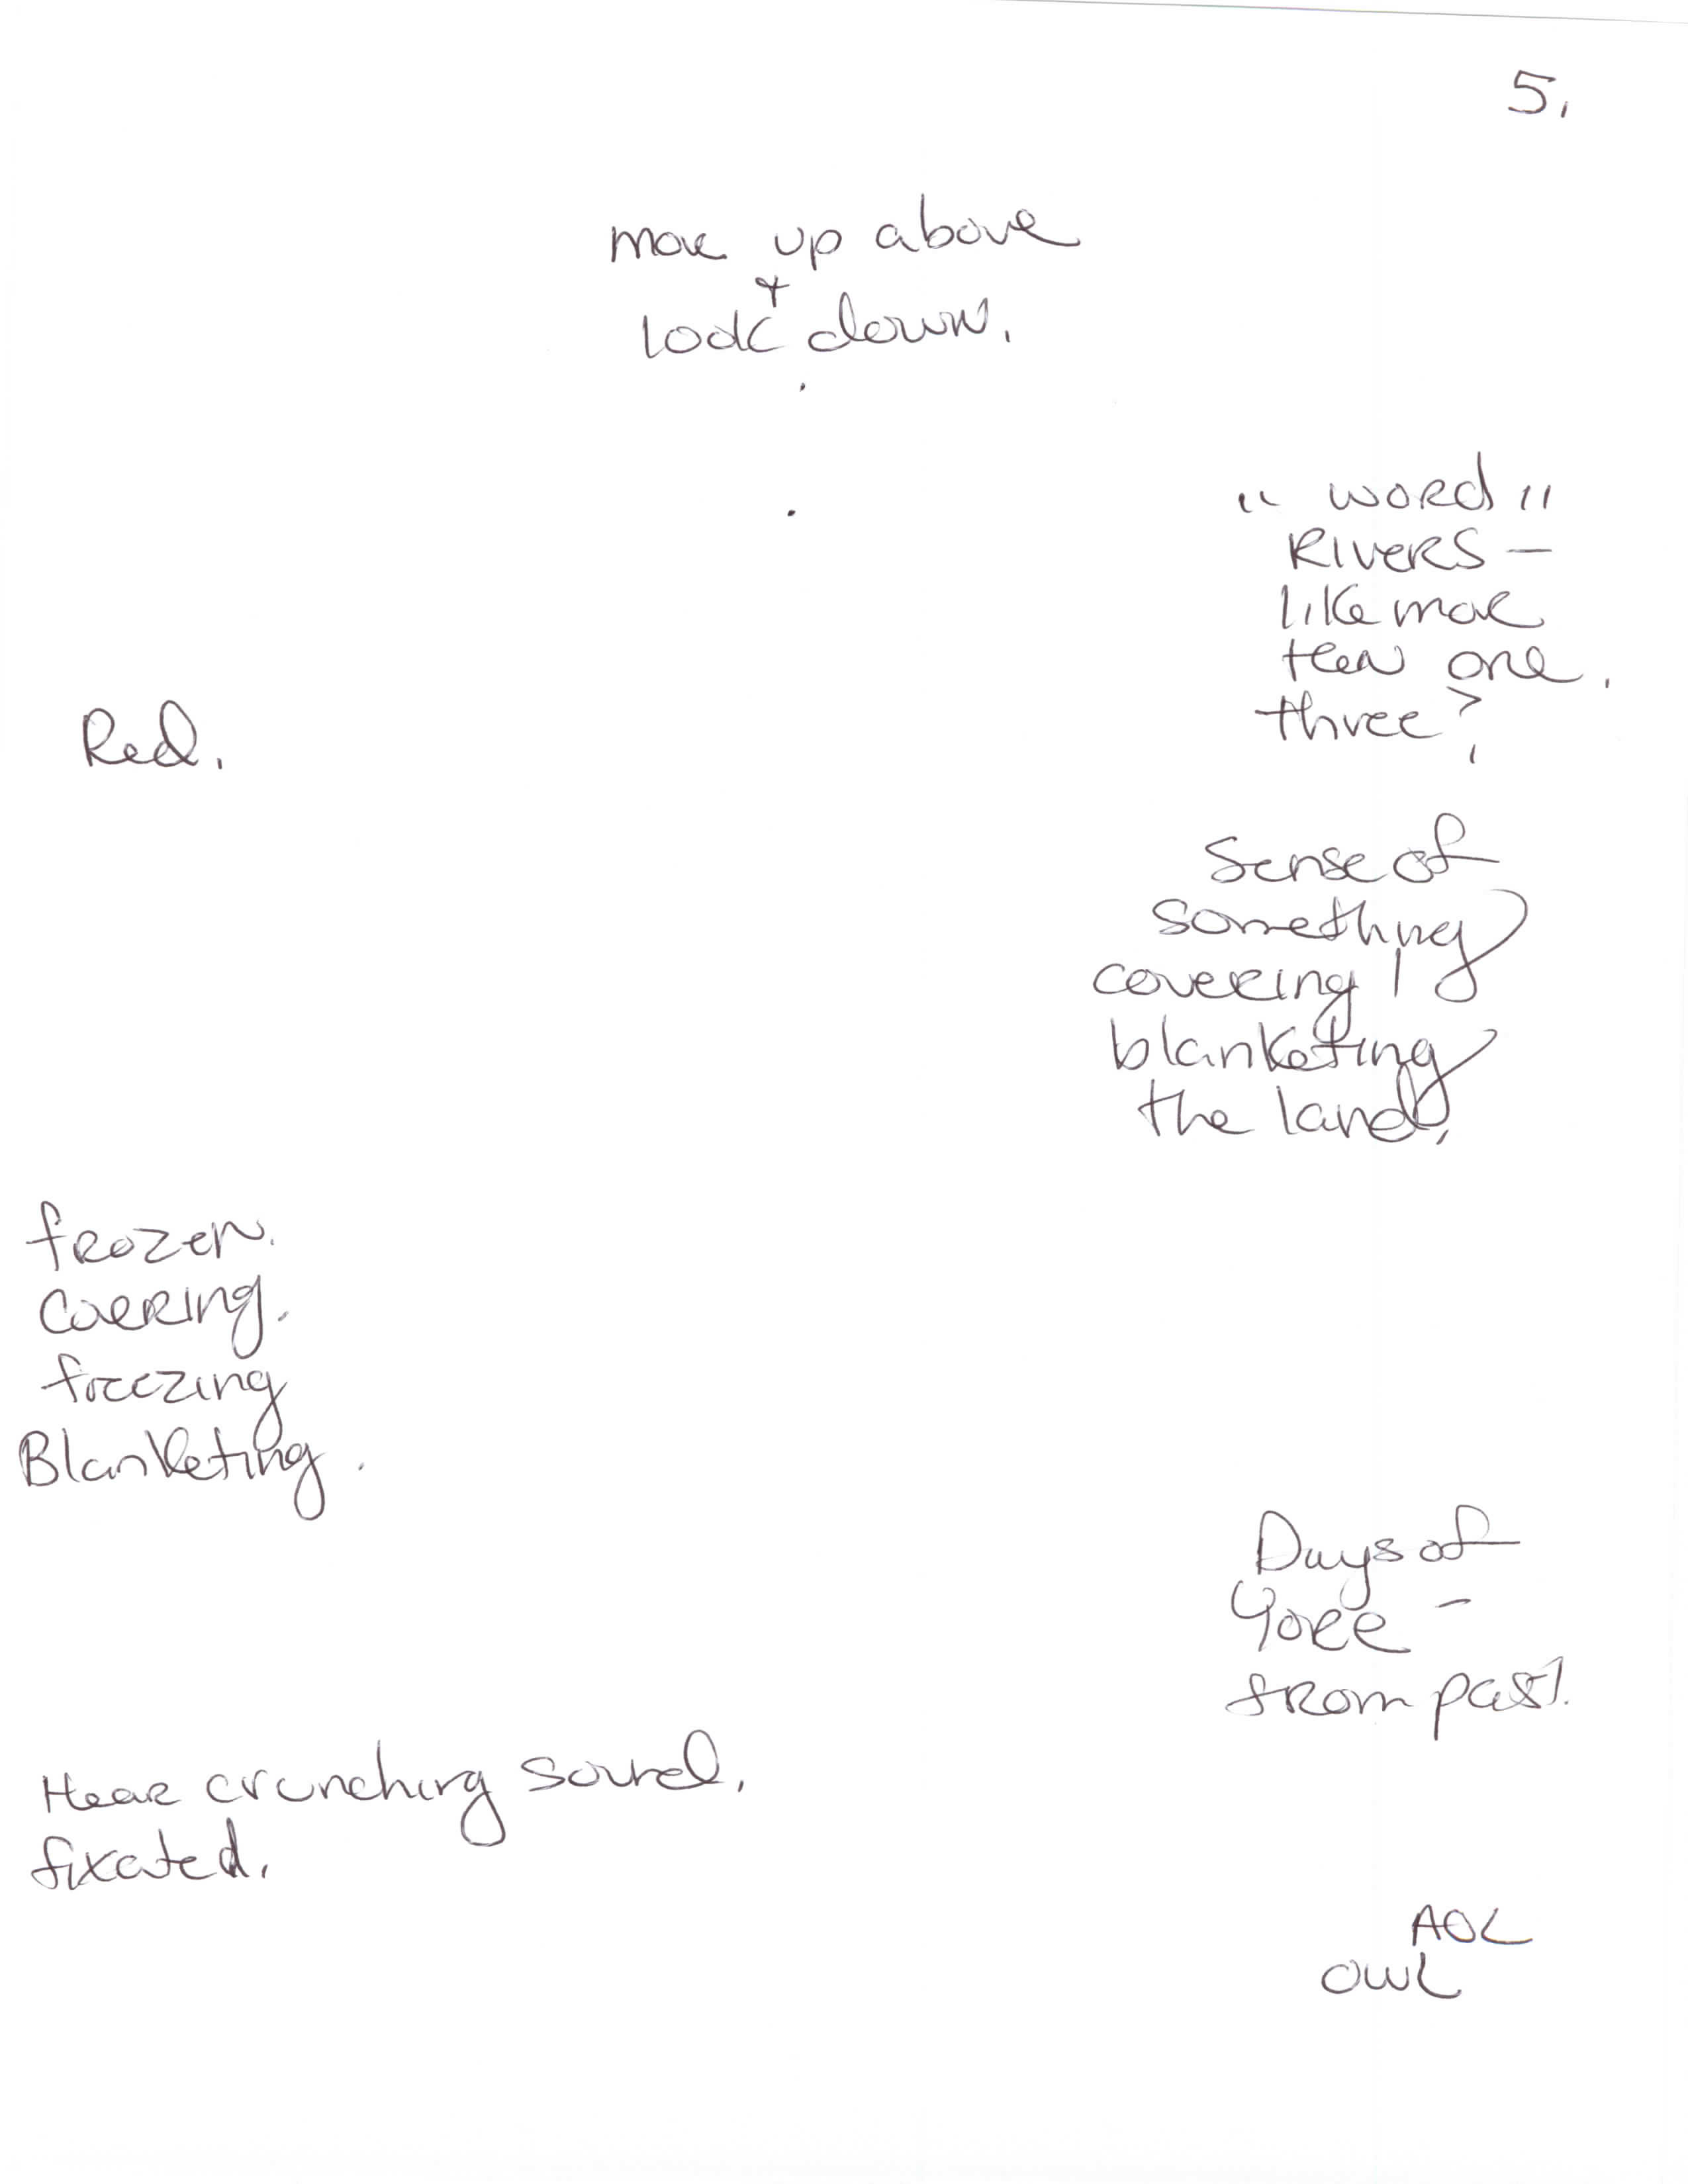 5.
move up above
+
look down.
"word"
RIVERS —
like more
then one.
three?
Red.
Sense of
something
covering /
blanketing
the land,
frozen.
covering.
freezing
Blanketing.
Days of
Yore —
from past.
Hear crunching sound.
fixated.
AOL
owl